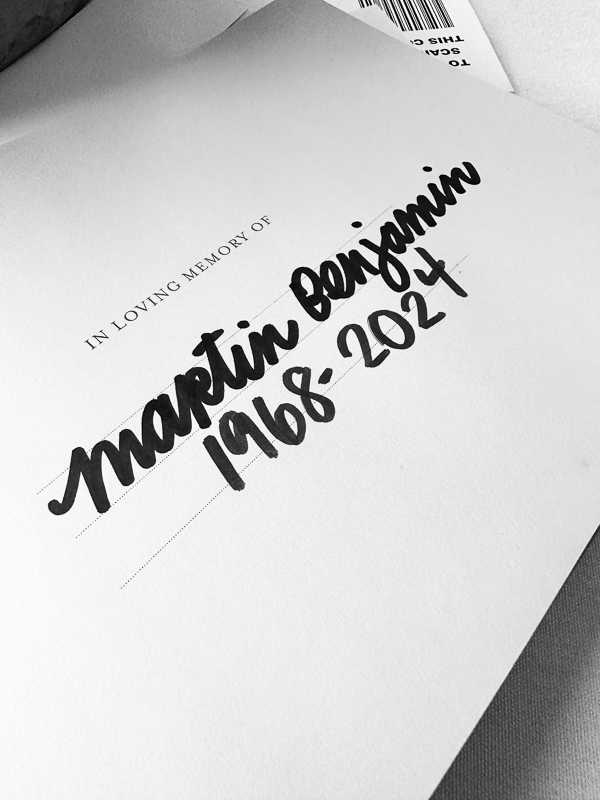 TO
SCAN
THIS C
IN LOVING MEMORY OF
Martin Benjamin
1968-2024